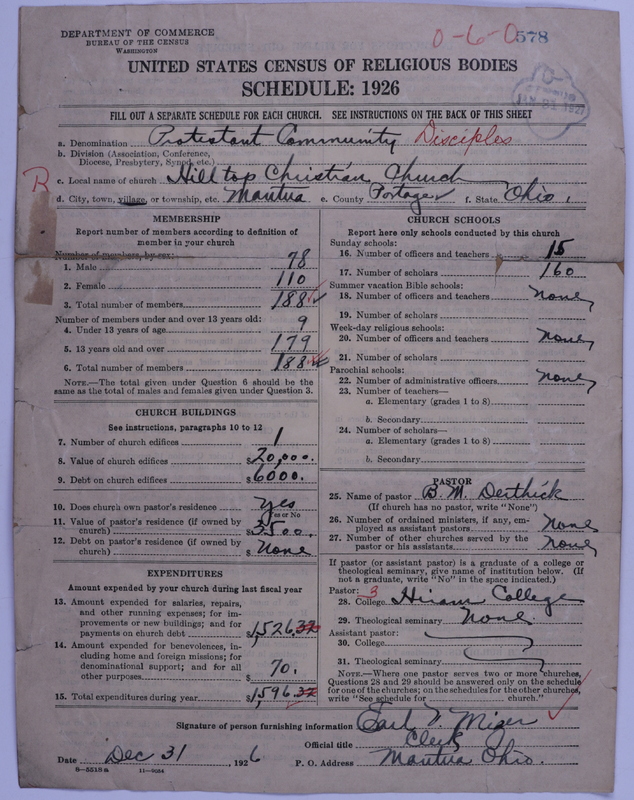 DEPARTMENT OF COMMERCE
BUREAU OF THE CENSUS
WASHINGTON
0-6-0 578
UNITED STATES CENSUS OF RELIGIOUS BODIES
SCHEDULE: 1926
JAN 21 1927
FILL OUT A SEPARATE SCHEDULE FOR EACH CHURCH. SEE INSTRUCTIONS ON THE BACK OF THIS SHEET
a. Denomination Protestant Community Disciples
b. Division (Association, Conference, Diocese, Presbytery, Synod, etc.)
R
c. Local name of church Hilltop Christian Church
d. City, town, village, or township, etc. Mantua e. County Portage f. State Ohio,
MEMBERSHIP
Report number of members according to definition of member in your church
Number of members, by sex:
1. Male 78
2. Female 110
3. Total number of members 188
Number of members under and over 13 years old:
4. Under 13 years of age 9
5. 13 years old and over 179
6. Total number of members 188
NOTE.—The total given under Question 6 should be the same as the total of males and females given under Question 3.
CHURCH BUILDINGS
See instructions, paragraphs 10 to 12
7. Number of church edifices 1
8. Value of church edifices $20,000.
9. Debt on church edifices $6000.
10. Does church own pastor's residence Yes
Yes or No
11. Value of pastor's residence (if owned by church) $3500.
12. Debt on pastor's residence (if owned by church) $ None
EXPENDITURES
Amount expended by your church during last fiscal year
13. Amount expended for salaries, repairs, and other running expenses; for improvements or new buildings; and for payments on church debt $1,526.37
14. Amount expended for benevolences, including home and foreign missions; for denominational support; and for all other purposes $ 70.
15. Total expenditures during year $1,596.37
CHURCH SCHOOLS
Report here only schools conducted by this church
Sunday schools:
16. Number of officers and teachers 15
17. Number of scholars 160
Summer vacation Bible schools:
18. Number of officers and teachers None
19. Number of scholars
Week-day religious schools:
20. Number of officers and teachers None
21. Number of scholars
Parochial schools:
22. Number of administrative officers None
23. Number of teachers—
a. Elementary (grades 1 to 8)
b. Secondary
24. Number of scholars—
a. Elementary (grades 1 to 8)
b. Secondary
PASTOR
25. Name of pastor B. M. Derthick
(If church has no pastor, write "None")
26. Number of ordained ministers, if any, employed as assistant pastors None
27. Number of other churches served by the pastor or his assistants None
If pastor (or assistant pastor) is a graduate of a college or theological seminary, give name of institution below. (If not a graduate, write "No" in the space indicated.)
Pastor: 3
28. College Hiram College
29. Theological seminary None.
Assistant pastor:
30. College
31. Theological seminary
NOTE.—Where one pastor serves two or more churches, Questions 28 and 29 should be answered only on the schedule for one of the churches; on the schedules for the other churches, write "See schedule for church."
Signature of person furnishing information Earl Miger
Official title Clerk
Date Dec 31, 1926 P. O. Address Mantua Ohio.
8-5518a 11-9054